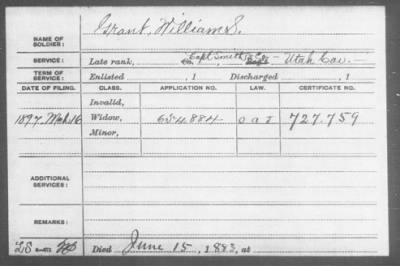 NAME OF SOLDIER: Grant, William S.
SERVICE: Late rank, Capt Smith Co. Utah Cav.
TERM OF SERVICE: Enlisted , 1 Discharged , 1
DATE OF FILING. CLASS. APPLICATION NO. LAW. CERTIFICATE NO.
Invalid,
1897, Mch 16 Widow, 654884 O a I 727.759
Minor,
ADDITIONAL SERVICES:
REMARKS:
Died June 15, 1883, at